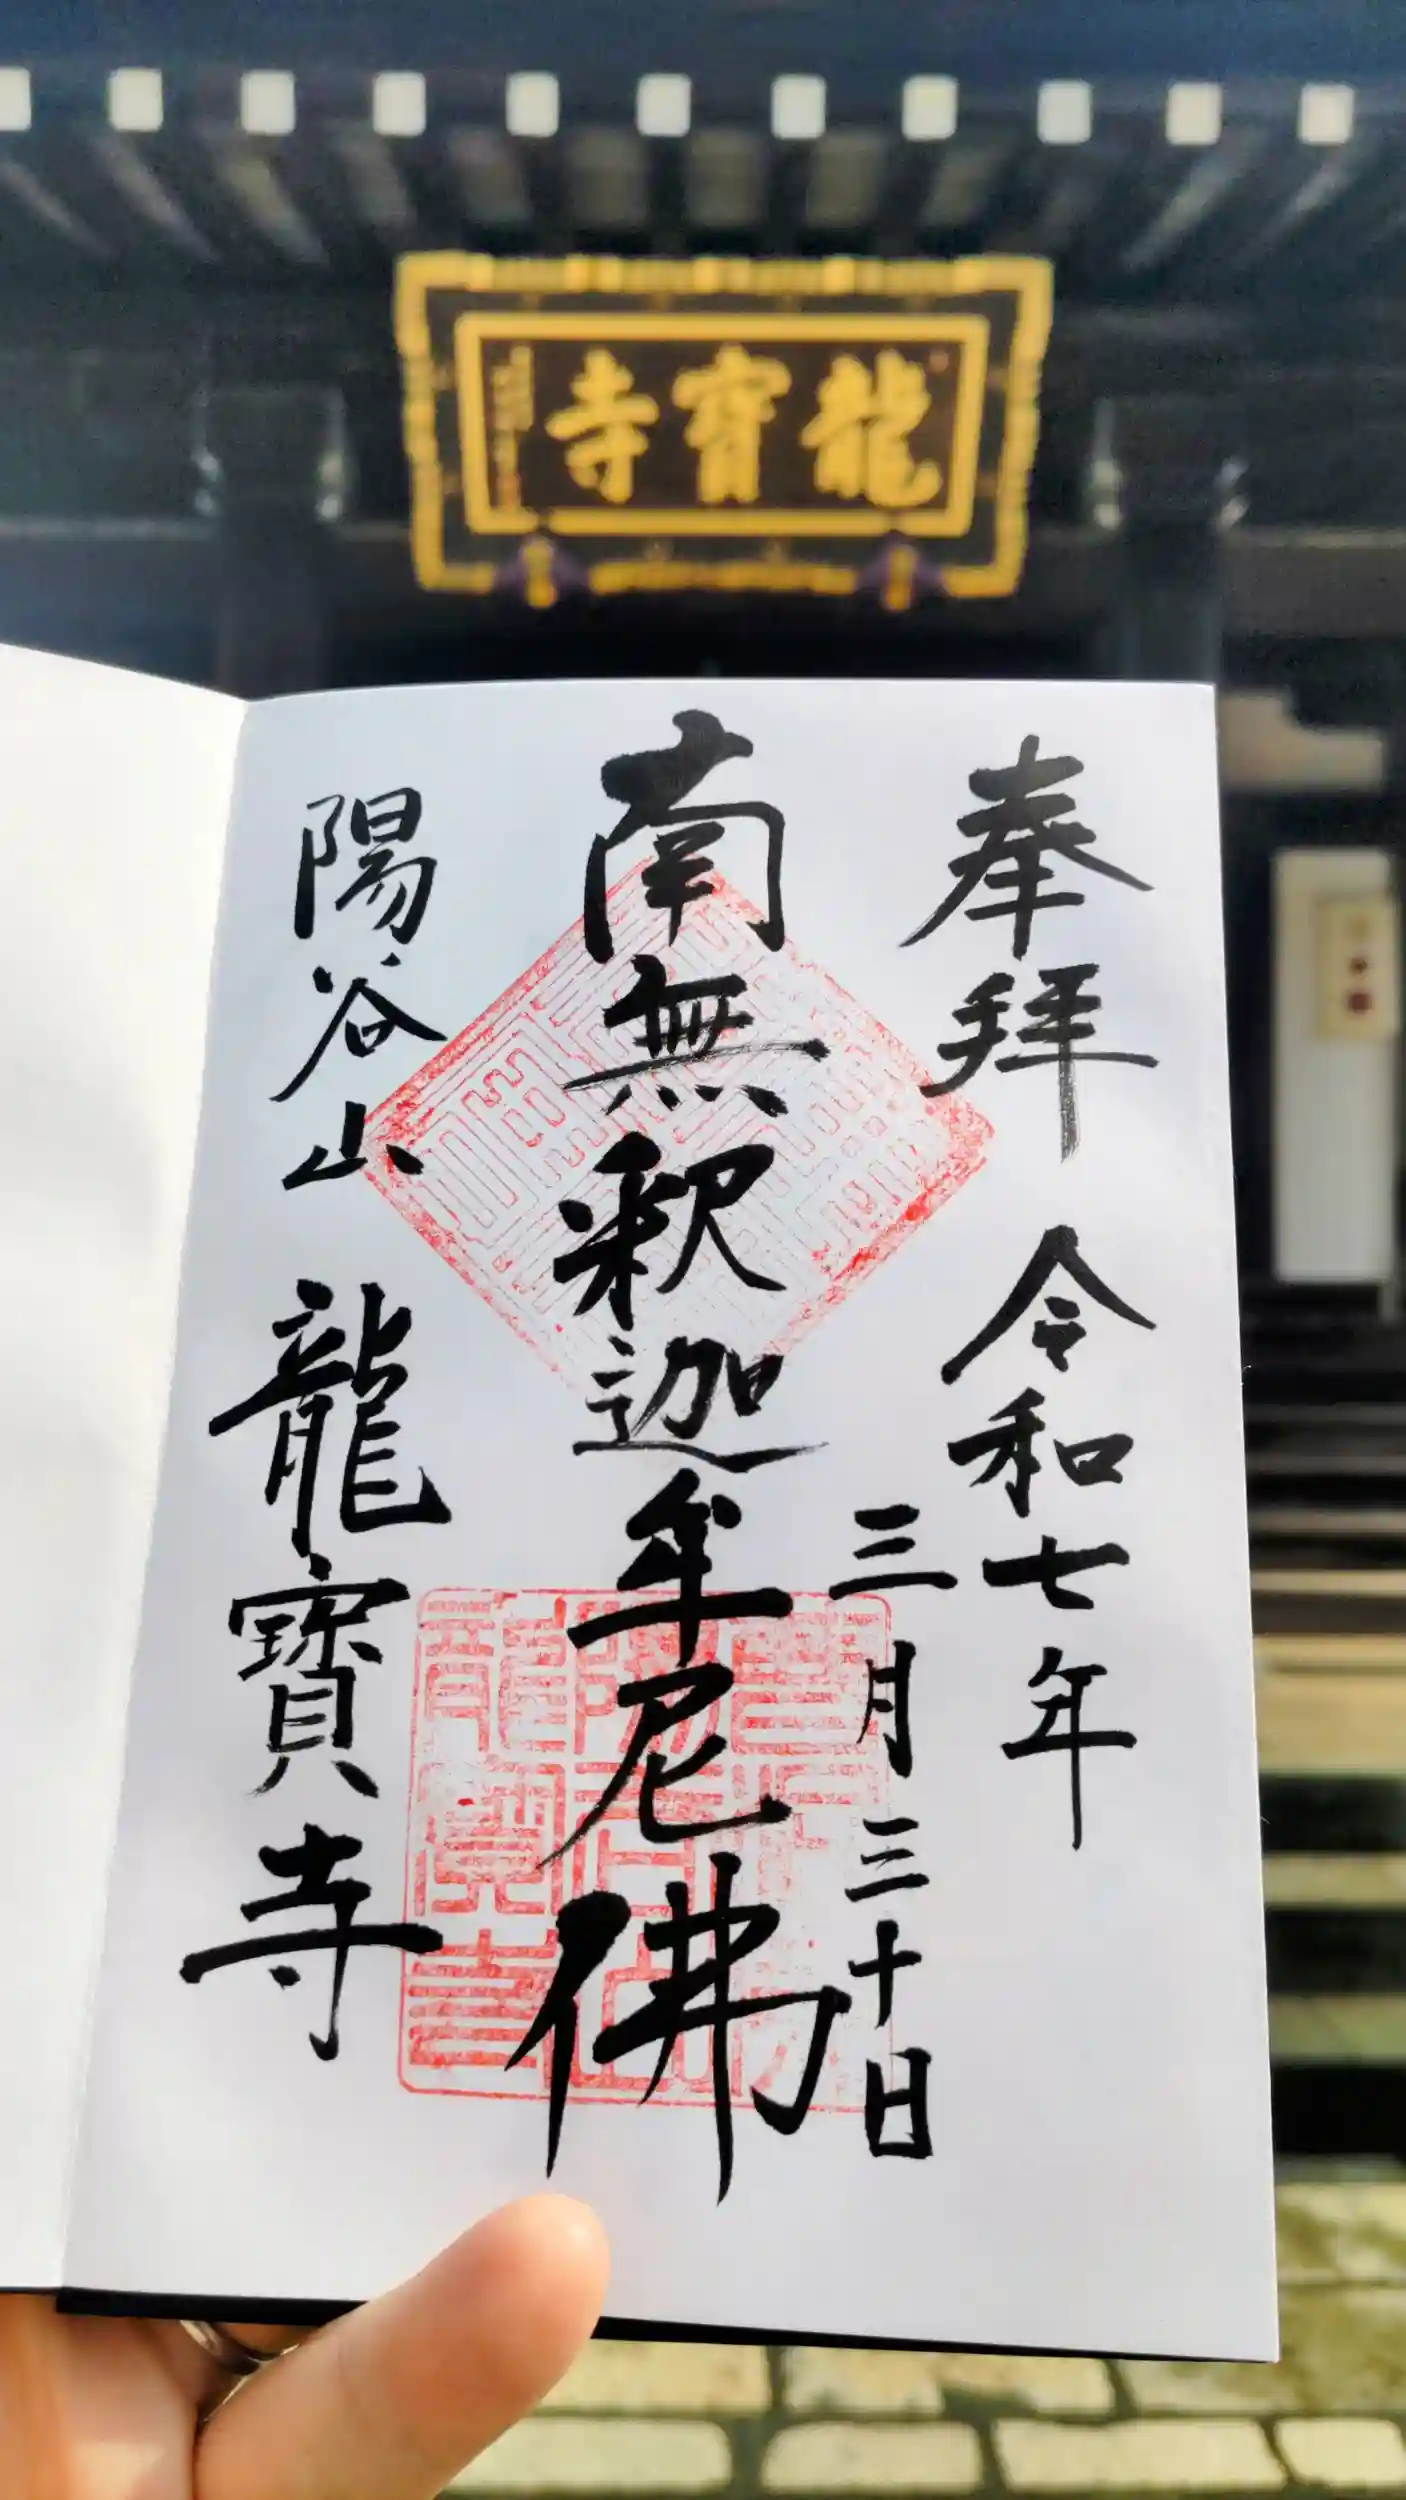 龍寶寺
奉拝 令和七年
三月三十日
南無釈迦牟尼佛
陽谷山 龍寶寺